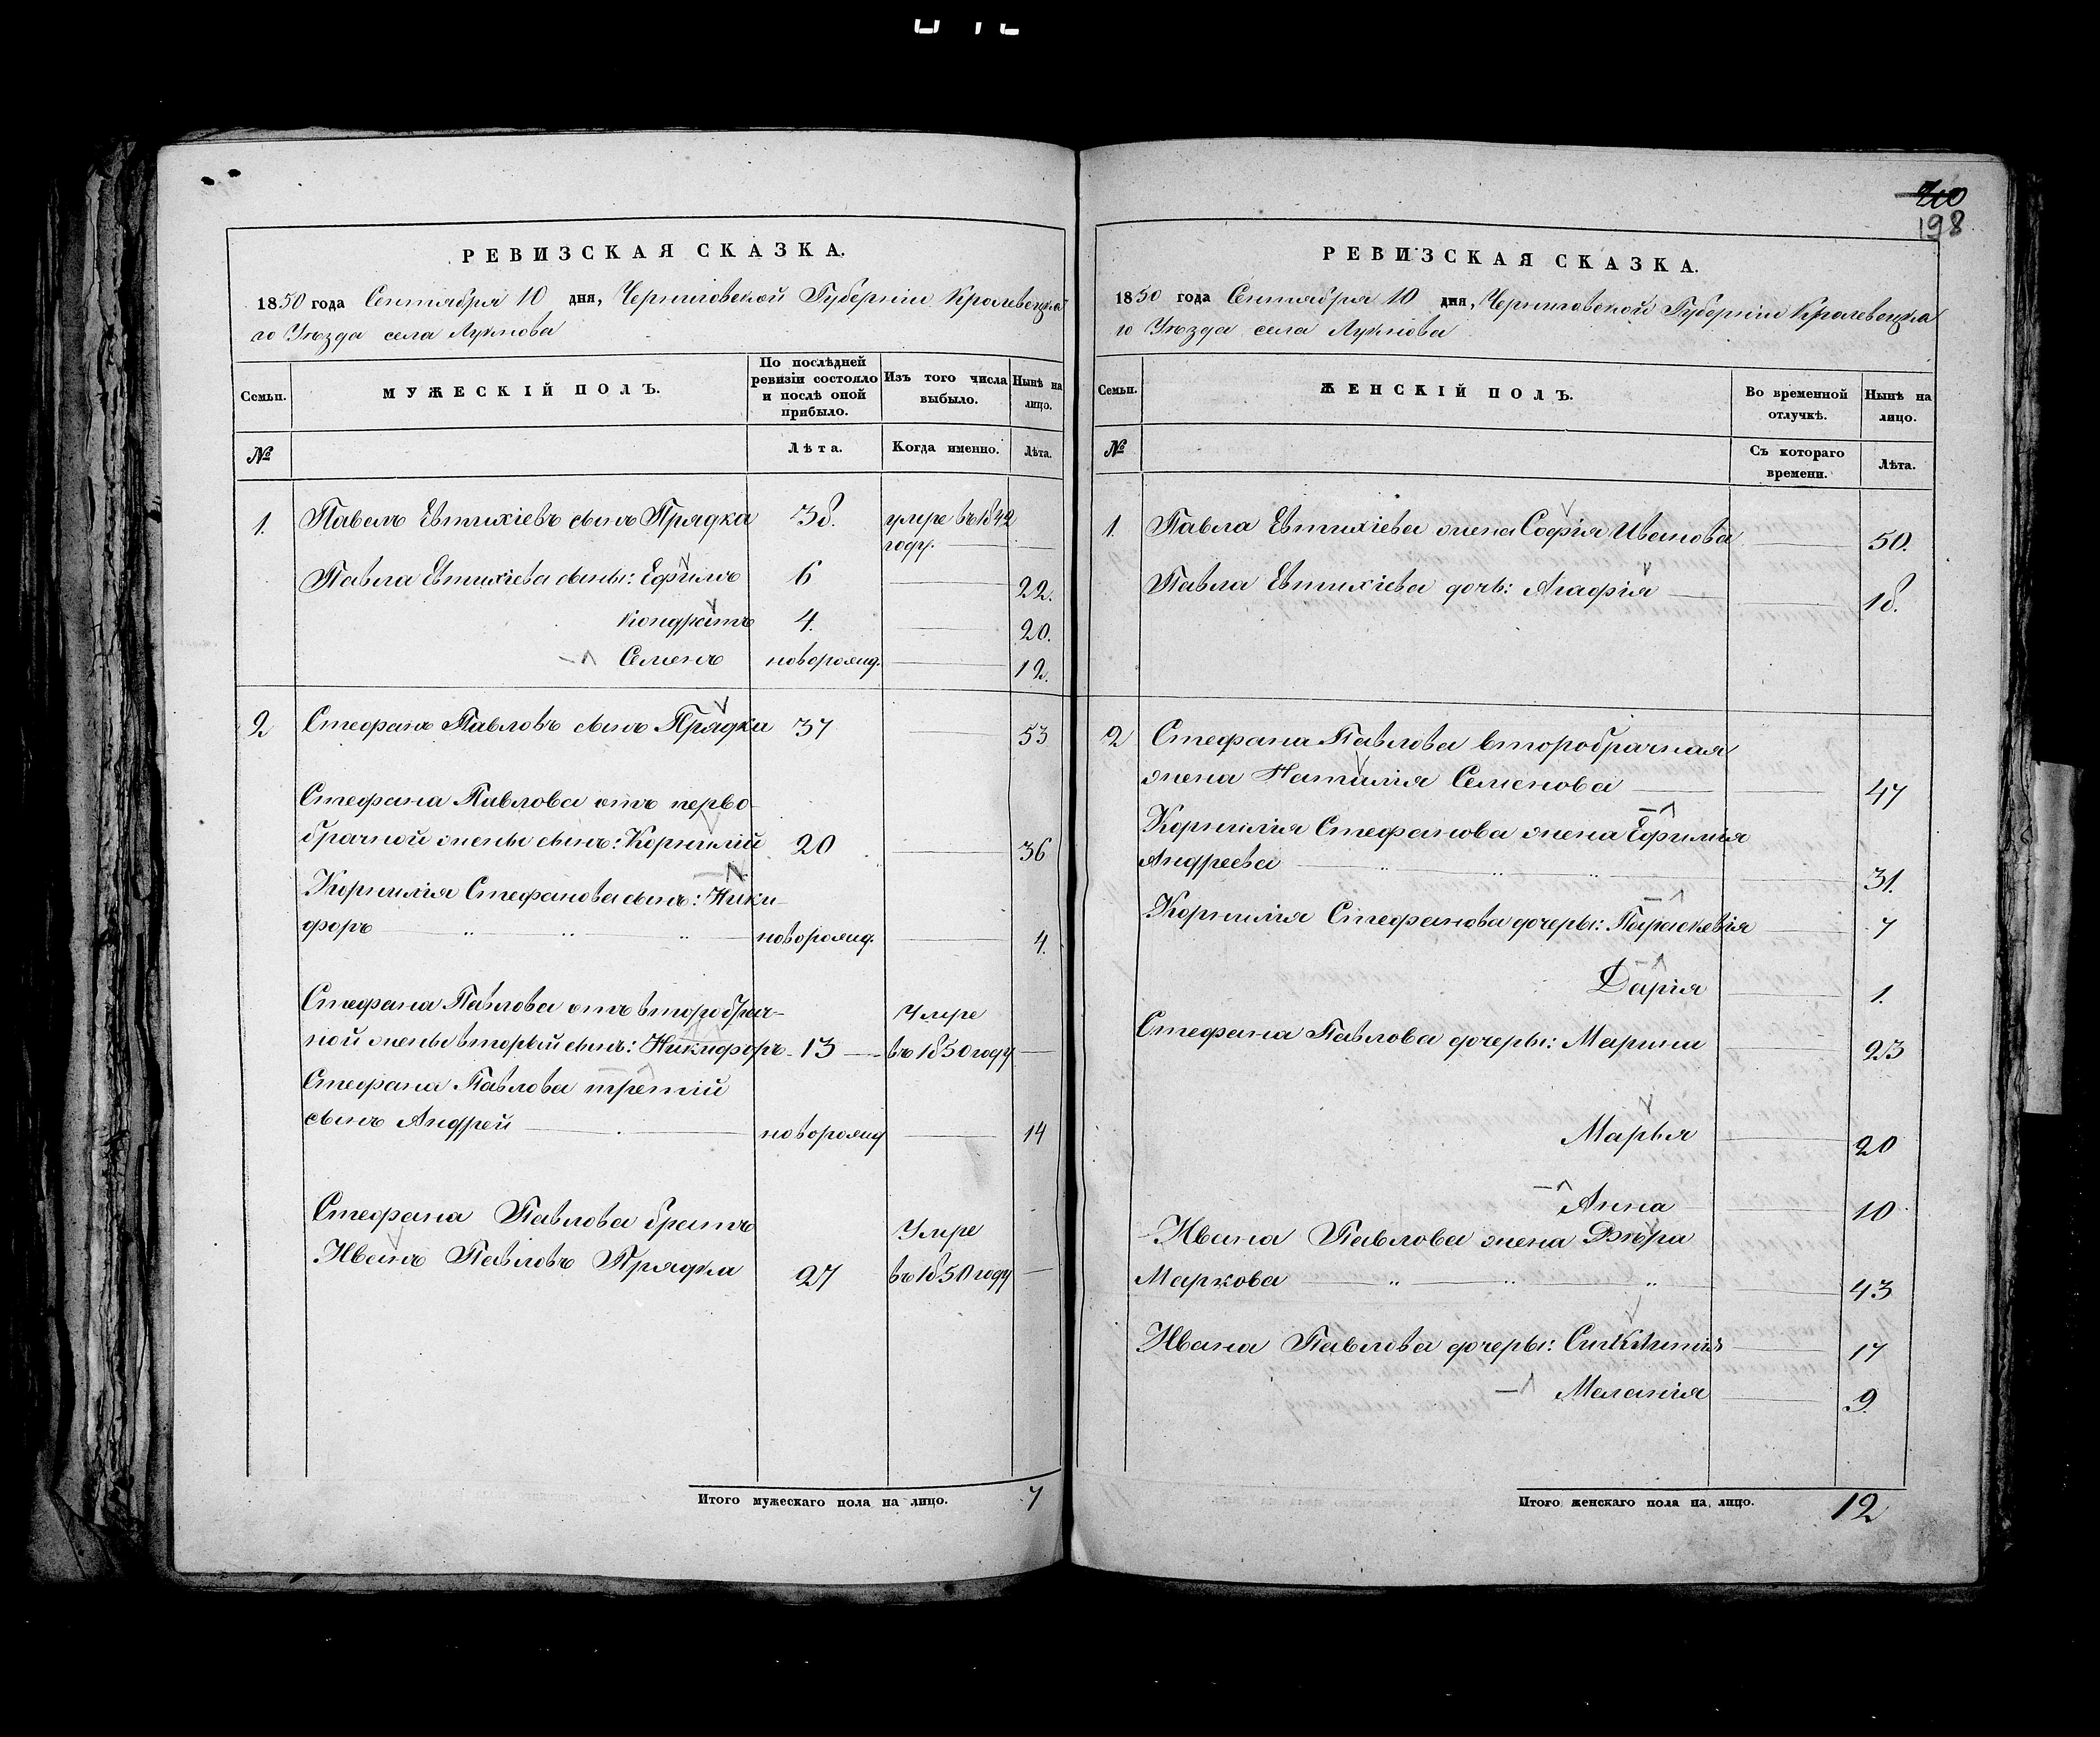 210
198
РЕВИЗСКАЯ СКАЗКА.
1850 года Сентября 10 дня, Черниговской Губернiи Кролевецка
го Уѣзда села Лукнова
Семьи.
МУЖЕСКIЙ ПОЛЪ.
По послѣдней ревизiи состояло и послѣ оной прибыло.
Изъ того числа выбыло.
Нынѣ на лицо.
№
Лѣта.
Когда именно.
Лѣта.
1. Павелъ Евтихiевъ сынъ Прядка 38. умре въ 1842
году.
Павла Евтихiева сыны: Ефимъ 6 22.
Кондратъ 4. 20.
Семенъ новорожд. 12.
2 Стефанъ Павловъ сынъ Прядка 37 53
Стефана Павлова отъ перво-
брачной жены сынъ: Корнилiй 20 36
Корнилiя Стефанова сынъ: Ники-
форъ новорожд. 4.
Стефана Павлова отъ второбрач-
Умре
ной жены вторый сынъ: Никифоръ 13 въ 1850 году
Стефана Павлова третiй
сынъ Андрей новорожд 14
Стефана Павлова братъ
Умре
Иванъ Павловъ Прядка 27 въ 1850 году
Итого мужескаго пола на лицо. 7
РЕВИЗСКАЯ СКАЗКА.
1850 года Сентября 10 дня, Черниговской Губернiи Кролевецка
го Уѣзда села Лукнова
Семьи.
ЖЕНСКIЙ ПОЛЪ.
Во временной отлучкѣ.
Нынѣ на лицо.
№
Съ котораго времени.
Лѣта.
1. Павла Евтихiева жена Софiя Иванова 50.
Павла Евтихiева дочь: Агафiя 18.
2 Стефана Павлова второбрачная
жена Наталiя Семенова 47
Корнилiя Стефанова жена Ефимiя
Андреева 31.
Корнилiя Стефанова дочеры: Параскевiя 7
Дарiя 1.
Стефана Павлова дочеры: Марина 23
Марья 20
Анна 10
Ивана Павлова жена Вѣра
Маркова 43
Ивана Павлова дочеры: 17
Меланiя 9.
Итого женскаго пола на лицо. 12